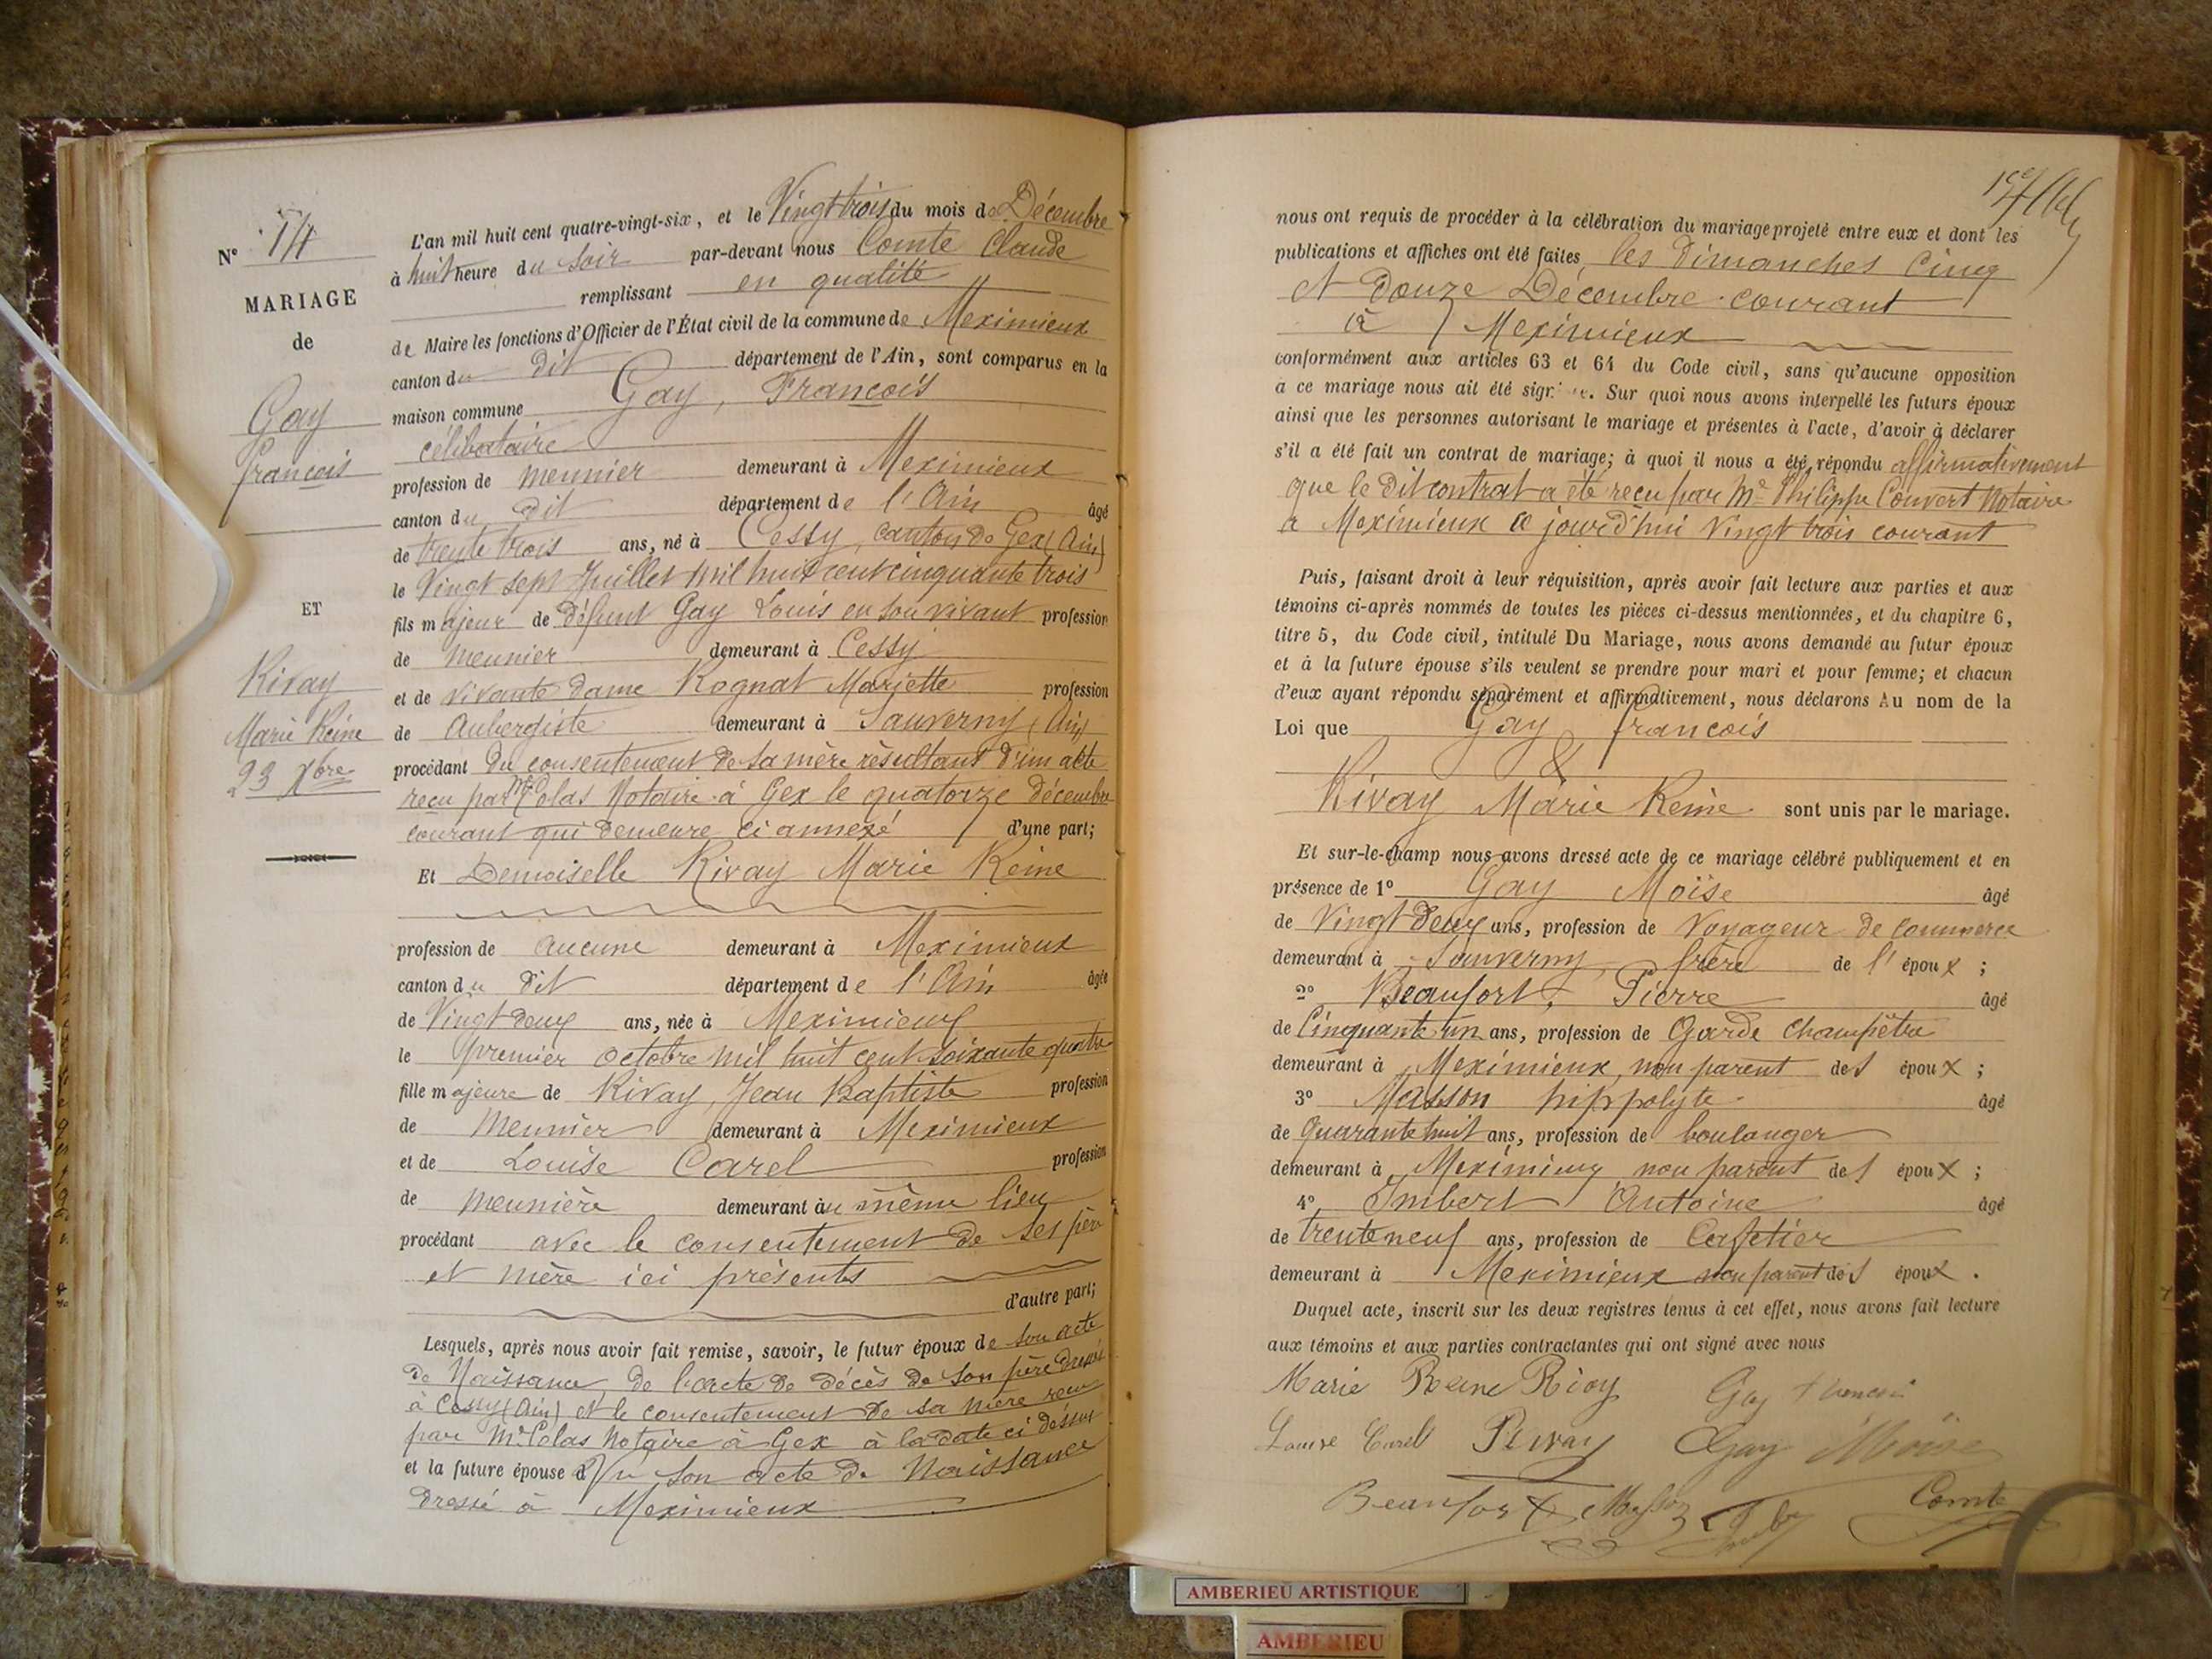 N° 14
MARIAGE
de
Gay
François
ET
Rivay
Marie Reine
23 Xbre
L'an mil huit cent quatre-vingt-six, et le Vingt trois du mois de Décembre
à huit heure du soir par-devant nous Comte Claude
remplissant en qualité
de Maire les fonctions d'Officier de l'État civil de la commune de Meximieux
canton du dit département de l'Ain, sont comparus en la
maison commune Gay, François
célibataire
profession de meunier demeurant à Meximieux
canton du dit département de l'Ain âgé
de trente trois ans, né à Cessy, canton de Gex (Ain)
le Vingt sept Juillet mil huit cent cinquante trois
fils majeur de défunt Gay Louis en son vivant profession
de meunier demeurant à Cessy
et de vivante dame Rognat Mariette profession
de Aubergiste demeurant à Sauverny (Ain)
procédant du consentement de sa mère résultant d'un acte
reçu par Me Colas Notaire à Gex le quatorze décembre
courant qui demeure ci annexé d'une part;
Et Demoiselle Rivay Marie Reine
profession de aucune demeurant à Meximieux
canton du dit département de l'Ain âgée
de Vingt deux ans, née à Meximieux
le premier octobre mil huit cent soixante quatre
fille majeure de Rivay, Jean Baptiste profession
de Meunier demeurant à Meximieux
et de Louise Carel profession
de meunière demeurant au même lieu
procédant avec le consentement de ses père
et mère ici présents
d'autre part;
Lesquels, après nous avoir fait remise, savoir, le futur époux de son acte
de Naissance, de l'acte de décès de son père dressé
à Cessy (Ain) et le consentement de sa mère reçu
par Me Colas Notaire à Gex à la date ci dessus
et la future épouse d'un son acte de Naissance
dressé à Meximieux
nous ont requis de procéder à la célébration du mariage projeté entre eux et dont les
publications et affiches ont été faites les dimanches cinq
et douze Décembre courant
à Meximieux
conformément aux articles 63 et 64 du Code civil, sans qu'aucune opposition
à ce mariage nous ait été sign e. Sur quoi nous avons interpellé les futurs époux
ainsi que les personnes autorisant le mariage et présentes à l'acte, d'avoir à déclarer
s'il a été fait un contrat de mariage; à quoi il nous a été répondu affirmativement
que le dit contrat a été reçu par Me Philippe Couvert Notaire
à Meximieux ce jourd'hui vingt trois courant
Puis, faisant droit à leur réquisition, après avoir fait lecture aux parties et aux
témoins ci-après nommés de toutes les pièces ci-dessus mentionnées, et du chapitre 6,
titre 5, du Code civil, intitulé Du Mariage, nous avons demandé au futur époux
et à la future épouse s'ils veulent se prendre pour mari et pour femme; et chacun
d'eux ayant répondu séparément et affirmativement, nous déclarons Au nom de la
Loi que Gay françois
&
Rivay Marie Reine sont unis par le mariage.
Et sur-le-champ nous avons dressé acte de ce mariage célébré publiquement et en
présence de 1° Gay Moïse âgé
de Vingt deux ans, profession de Voyageur de commerce
demeurant à Sauverny, frère de l'époux ;
2° Beaufort, Pierre âgé
de Cinquante un ans, profession de Garde champêtre
demeurant à Meximieux, non parent des époux ;
3° Masson hippolyte âgé
de Quarante huit ans, profession de boulanger
demeurant à Meximieux non parent des époux ;
4° Imbert Antoine âgé
de trente neuf ans, profession de Cafetier
demeurant à Meximieux non parent des époux .
Duquel acte, inscrit sur les deux registres tenus à cet effet, nous avons fait lecture
aux témoins et aux parties contractantes qui ont signé avec nous
Marie Reine Rivay Gay
Louise Carel Rivay Gay Moïse
Beaufort Masson Comte
AMBERIEU ARTISTIQUE
AMBERIEU